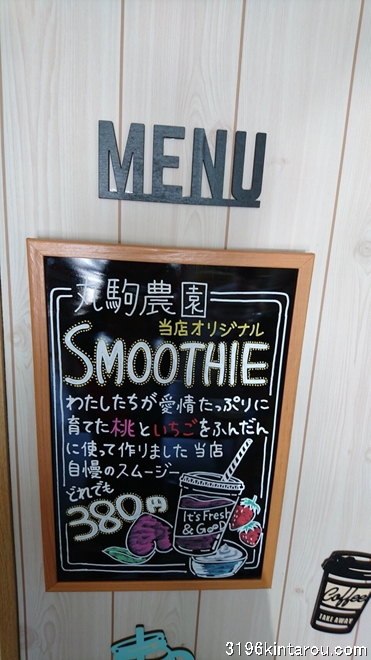 MENU
丸駒農園
当店オリジナル
SMOOTHIE
わたしたちが愛情たっぷりに
育てた桃といちごをふんだん
に使って作りました 当店
自慢のスムージー
どれでも
380円
It's Fresh
& GooD
Coffee
TAKE AWAY
3196kintarou.com